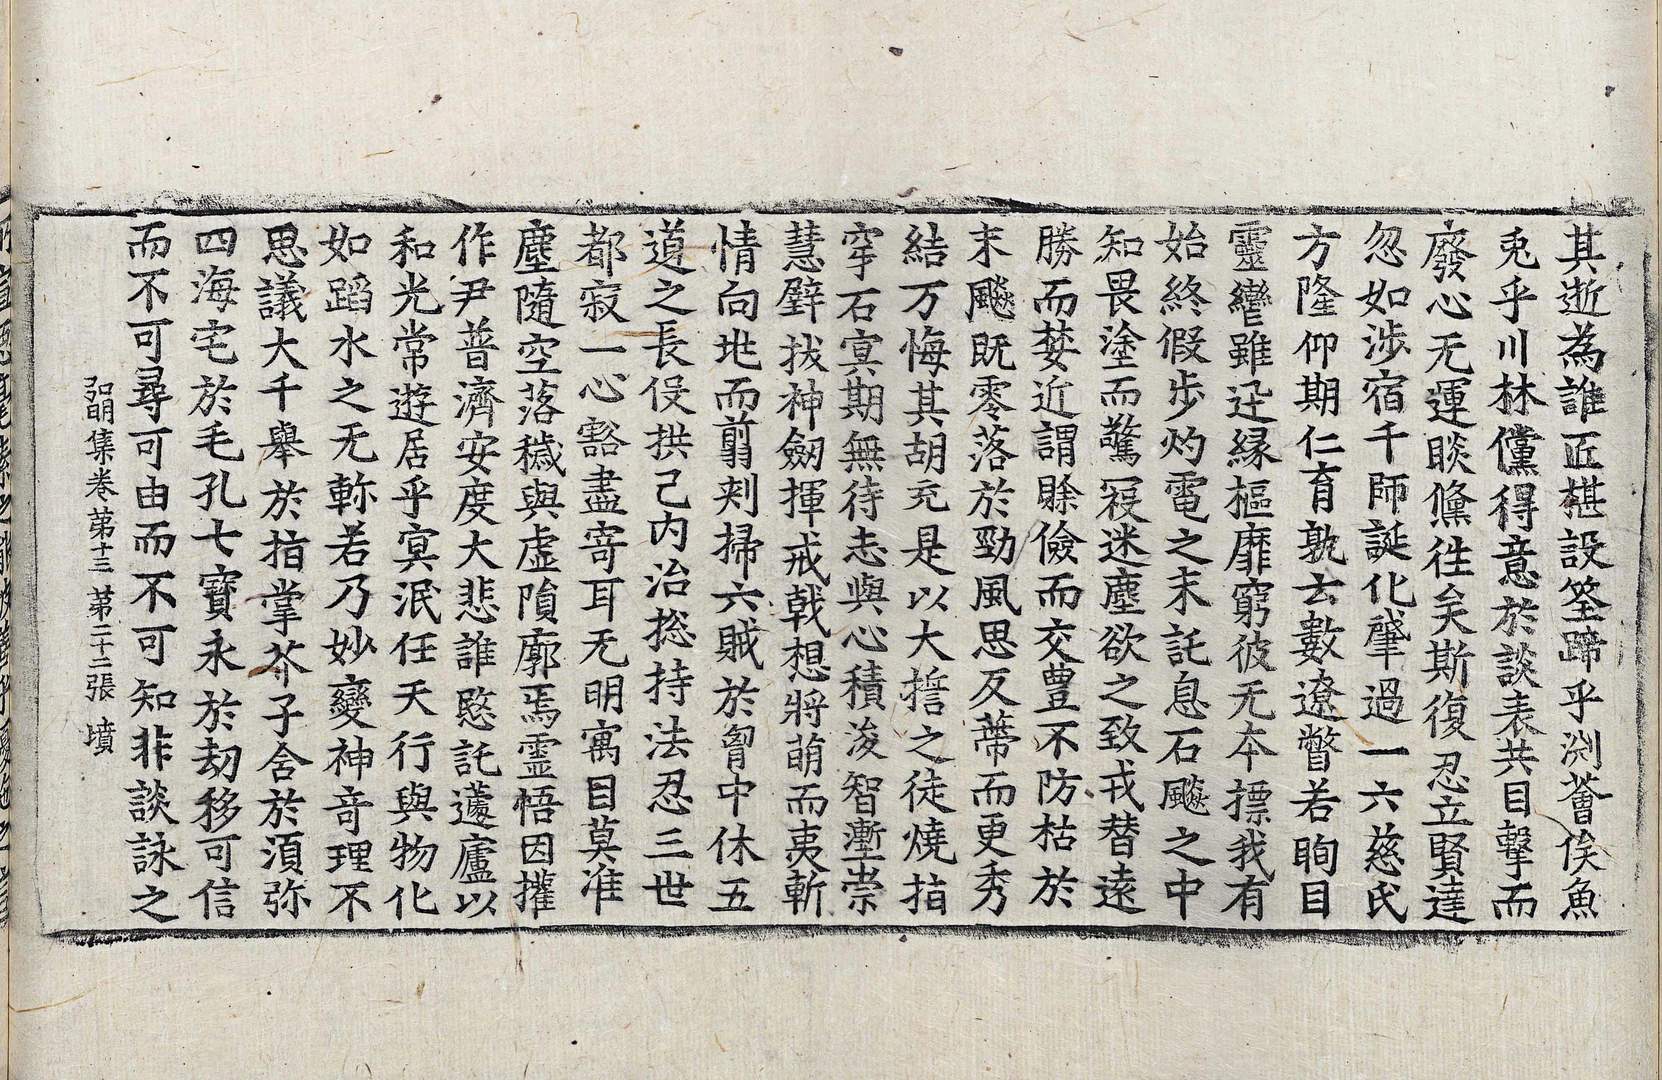 其逝為誰匠棋設筌蹄乎渊薈俟魚
兎乎川林儻得意於談表共目擊而
廢心无運睒儵徃矣斯復忍立賢達
忽如涉宿千師誕化肇過一六慈氏
方隆仰期仁育孰云數遼瞥若眴目
靈轡雖迅縁樞靡窮彼无夲摽我有
始終假步灼電之末託息石飈之中
知畏塗而驚寇迷塵欲之致戎替遠
勝而婪近謂賖儉而交豊不防枯於
末飈既零落於勁風思反蔕而更秀
結万悔其胡充是以大誓之徒燒指
穿石㝠期無待志與心積浚智壍崇
慧壁拔神劒揮戒戟想將萌而夷斬
情向兆而翦刾掃六賊於胷中休五
道之長役拱己内治揔持法忍三世
都寂一心豁盡寄耳无明寓目莫准
塵隨空落穢與虛隕廓焉靈悟因攉
作尹普濟安度大悲誰愍託蘧廬以
和光常遊居乎㝠泯任天行與物化
如蹈水之无輈若乃妙變神竒理不
思議大千舉於指掌芥子舎於湏弥
四海宅於毛孔七寳永於劫移可信
而不可尋可由而不可知非談詠之
弘明集卷苐十三 苐二十二張 墳